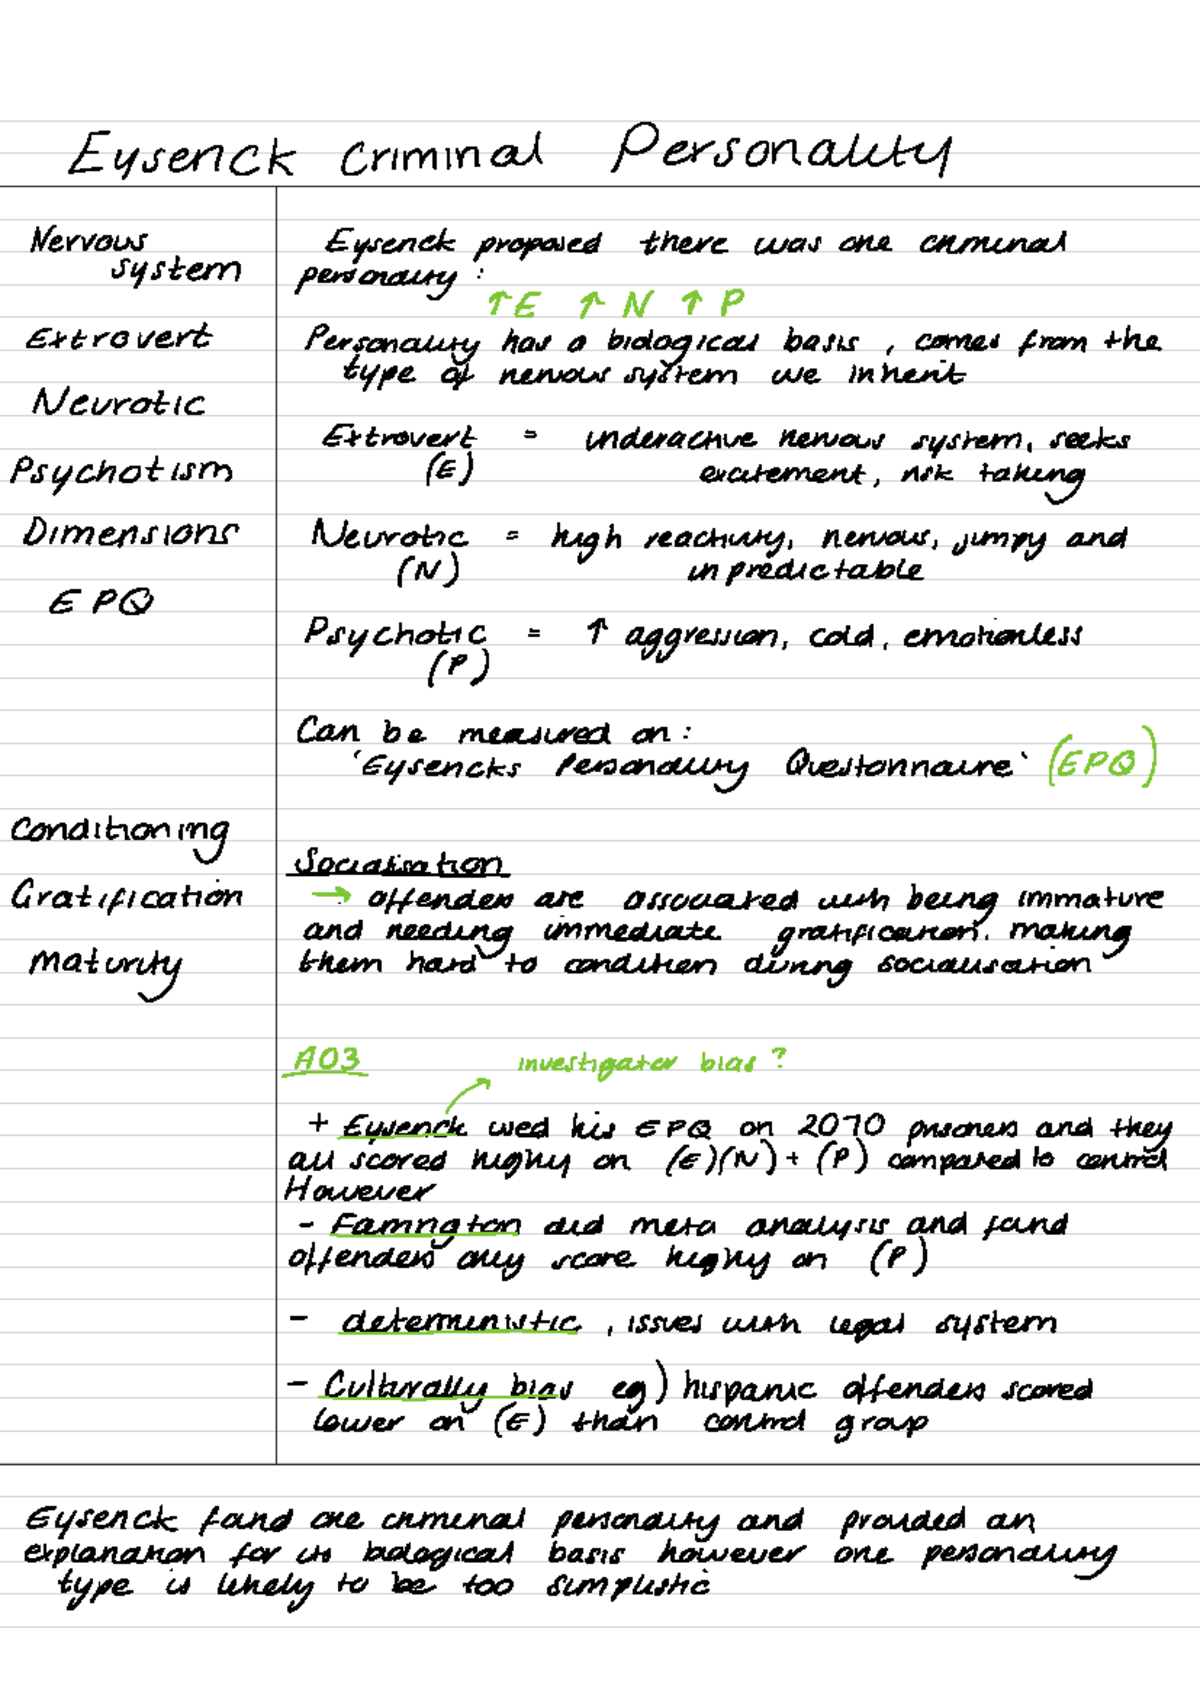 Eysenck Criminal Personality
Nervous
system
Extrovert
Neurotic
Psychotism
Dimensions
EPQ
Conditioning
Gratification
Maturity
Eysenck proposed there was one criminal
personality:
↑E ↑N ↑P
Personality has a biological basis, comes from the
type of nervous system we inherit
Extrovert = underactive nervous system, seeks
(E) excitement, risk taking
Neurotic = high reactivity, nervous, jumpy and
(N) unpredictable
Psychotic = ↑ aggression, cold, emotionless
(P)
Can be measured on:
'Eysencks Personality Questonnaire' (EPQ)
Socialisation
→ offenders are associated with being immature
and needing immediate gratification. making
them hard to condition during socialisation
AO3 investigator bias?
+ Eysenck used his EPQ on 2070 prisoners and they
all scored highly on (E)(N)+(P) compared to control
However
- Farrington did meta analysis and found
offenders only score highly on (P)
- deterministic, issues with legal system
- Culturally bias eg) hispanic offenders scored
lower on (E) than control group
Eysenck found one criminal personality and provided an
explanation for its biological basis however one personality
type is likely to be too simplistic